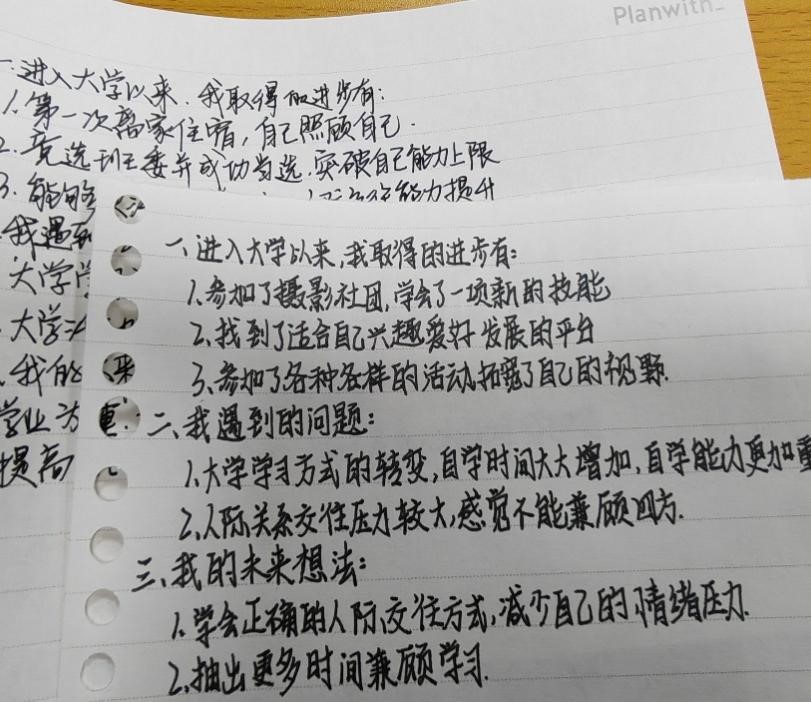 Planwith_
一、进入大学以来,我取得的进步有:
1.第一次离家住宿,自己照顾自己.
2.竞选班委并成功当选,突破自己能力上限
3.能够
能力提升
我遇到
大学
大学
我的
学业为
提高
一、进入大学以来,我取得的进步有:
1.参加了摄影社团,学会了一项新的技能
2.找到了适合自己兴趣爱好发展的平台
3.参加了各种各样的活动,拓宽了自己的视野.
二、我遇到的问题:
1.大学学习方式的转变,自学时间大大增加,自学能力更加重
2.人际关系交往压力较大,感觉不能兼顾四方.
三、我的未来想法:
1.学会正确的人际交往方式,减少自己的情绪压力.
2.抽出更多时间兼顾学习.